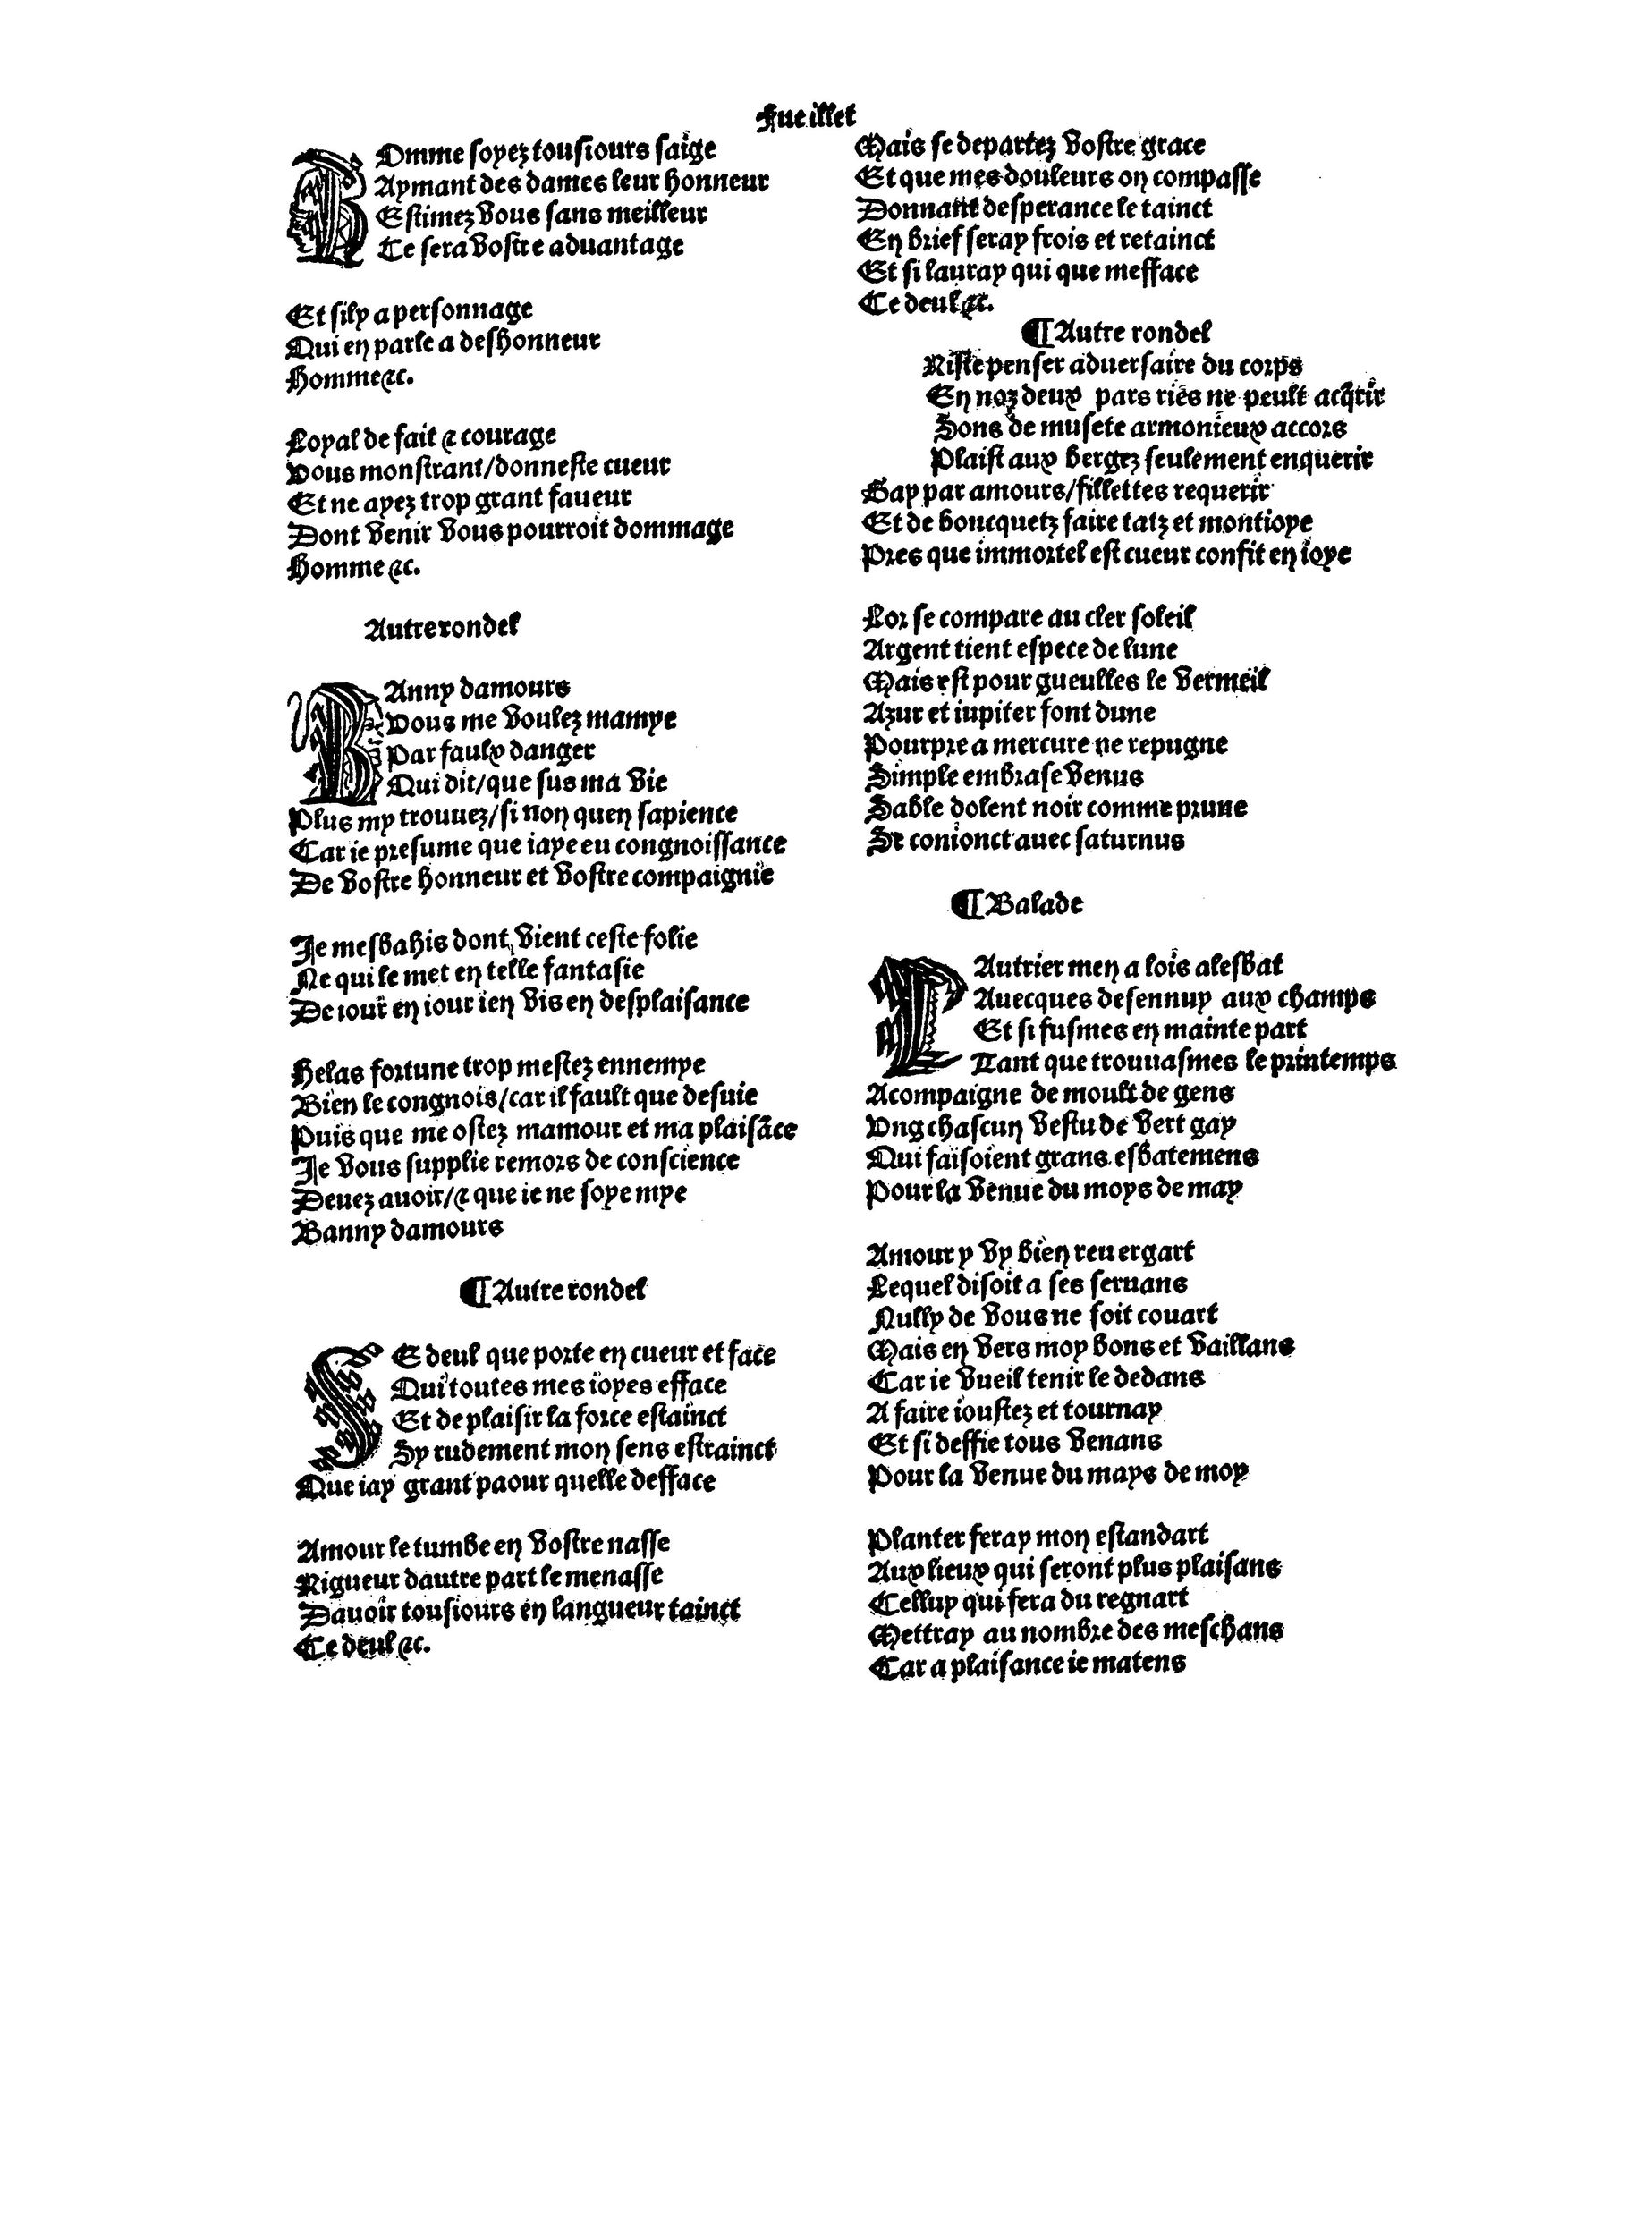 Fueillet
Omme soyez tousiours saige
Aymant des dames leur honneur
Estimez vous sans meilleur
Ce sera vostre aduantage
Et sily a personnage
Qui en parle a deshonneur
Homme &c.
Loyal de fait & courage
Vous monstrant/donneste cueur
Et ne ayez trop grant faueur
Dont venir vous pourroit dommage
Homme &c.
Autre rondel
BAnny damours
Vous me voulez mamye
Par faulx danger
Qui dit/que sus ma vie
Plus my trouuez/si non quen sapience
Car ie presume que iaye eu congnoissance
De vostre honneur et vostre compaignie
Je mesbahis dont vient ceste folie
Ne qui le met en telle fantasie
De iour en iour ien vis en desplaisance
Helas fortune trop mestez ennemye
Bien le congnois/car il fault que desuie
Puis que me ostez mamour et ma plaisãce
Je vous supplie remors de conscience
Deuez auoir/& que ie ne soye mye
Banny damours
¶ Autre rondel
SE deul que porte en cueur et face
Qui toutes mes ioyes efface
Et de plaisir la force estainct
Sy rudement mon sens estrainct
Que iay grant paour quelle defface
Amour le tumbe en vostre nasse
Rigueur dautre part le menasse
Dauoir tousiours en langueur tainct
Ce deul &c.
Mais se departez vostre grace
Et que mes douleurs on compasse
Donnant desperance le tainct
En brief seray frois et retainct
Et si lauray qui que mefface
Ce deul &c.
¶ Autre rondel
Riste penser aduersaire du corps
En noz deux pars riẽs ne peult acq̃rir
Sons de musete armonieux accors
Plaist aux bergez seulement enquerir
Gay par amours/fillettes requerir
Et de boucquetz faire tatz et montioye
Pres que immortel est cueur confit en ioye
Lor se compare au cler soleil
Argent tient espece de lune
Mais est pour gueulles le vermeil
Azur et iupiter font dune
Pourpre a mercure ne repugne
Simple embrase venus
Sable dolent noir comme prune
Se conionct auec saturnus
¶ Balade
LAutrier men a lois alesbat
Auecques desennuy aux champs
Et si fusmes en mainte part
Tant que trouuasmes le printemps
Acompaigne de moult de gens
Vng chascun vestu de vert gay
Qui faisoient grans esbatemens
Pour la venue du moys de may
Amour y vy bien reuergart
Lequel disoit a ses seruans
Nully de vous ne soit couart
Mais en vers moy bons et vaillans
Car ie vueil tenir le dedans
A faire ioustez et tournay
Et si deffie tous venans
Pour la venue du mays de moy
Planter feray mon estandart
Aux lieux qui seront plus plaisans
Celluy qui fera du regnart
Mettray au nombre des meschans
Car a plaisance ie matens